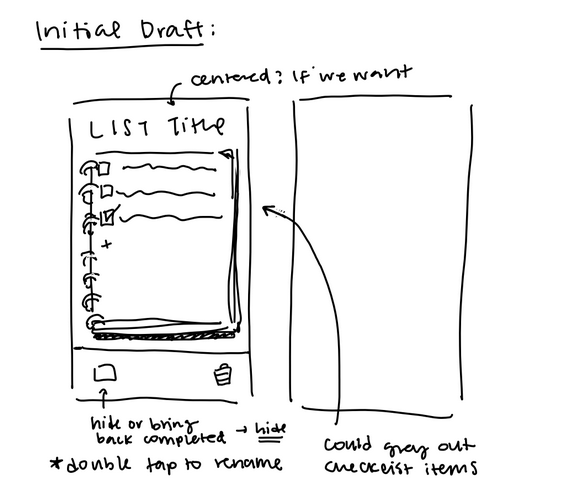 Initial Draft:
centered? If we want
LIST Title
+
hide or bring
back completed → hide
*double tap to rename
could grey out
checklist items